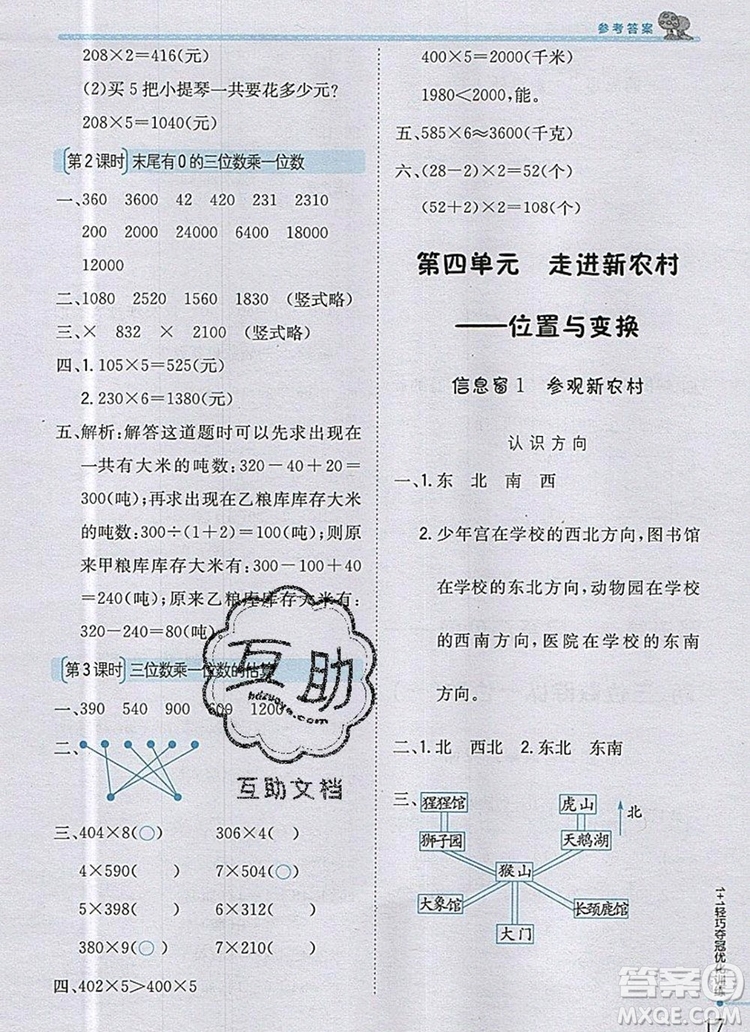 参考答案
208×2=416(元)
(2)买5把小提琴一共要花多少元?
208×5=1040(元)
第2课时 末尾有0的三位数乘一位数
一、360 3600 42 420 231 2310
200 2000 24000 6400 18000
12000
二、1080 2520 1560 1830 (竖式略)
三、× 832 × 2100 (竖式略)
四、1.105×5=525(元)
2.230×6=1380(元)
五、解析:解答这道题时可以先求出现在
一共有大米的吨数:320-40+20=
300(吨);再求出现在乙粮库库存大米
的吨数:300÷(1+2)=100(吨);则原
来甲粮库库存大米有:300-100+40
=240(吨);原来乙粮库库存大米有:
320-240=80(吨)
第3课时 三位数乘一位数的估算
一、390 540 900 609 1200
二、
三、404×8(○) 306×4( )
4×590( ) 7×504(○)
5×398( ) 2×697( )
380×9(○) 7×214( )
四、402×5>400×5
400×5=2000(千米)
1980<2000,能。
五、585×6≈3600(千克)
六、(28-2)×2=52(个)
(52+2)×2=108(个)
第四单元 走进新农村
——位置与变换
信息窗1 参观新农村
认识方向
一、1.东 北 南 西
2.少年宫在学校的西北方向,图书馆
在学校的东北方向,动物园在学校
的西南方向,医院在学校的东南
方向。
二、1.北 西北 2.东北 东南
三、
猩猩馆 虎山 北
狮子园 天鹅湖
猴山
大象馆 长颈鹿馆
大门
互助
hdzuoye.com
互助文档
1+1轻巧夺冠优化训练
答案圈
MXQE.COM
17